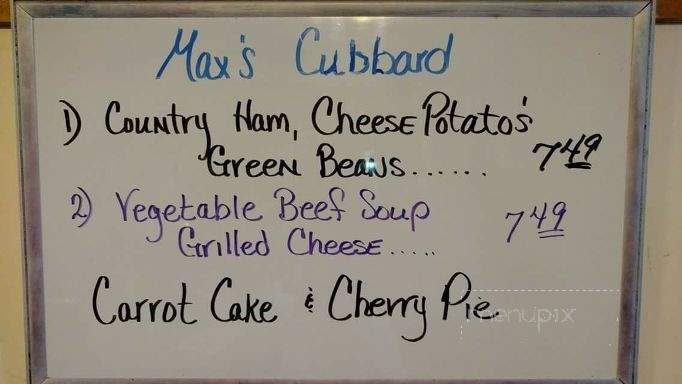 Max's Cubbard
1) Country Ham, Cheese Potato's
Green Beans...... 7 49
2) Vegetable Beef Soup
Grilled Cheese..... 7 49
Carrot Cake & Cherry Pie
menupix